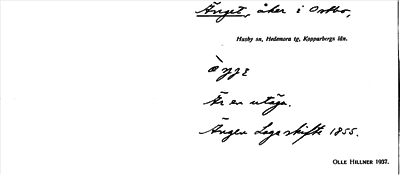 Änget, åker i Ortbo,
Husby sn, Hedemora tg, Kopparbergs län.
Är en utäga.
Ängen Laga skifte 1855.
OLLE HILLNER 1937.